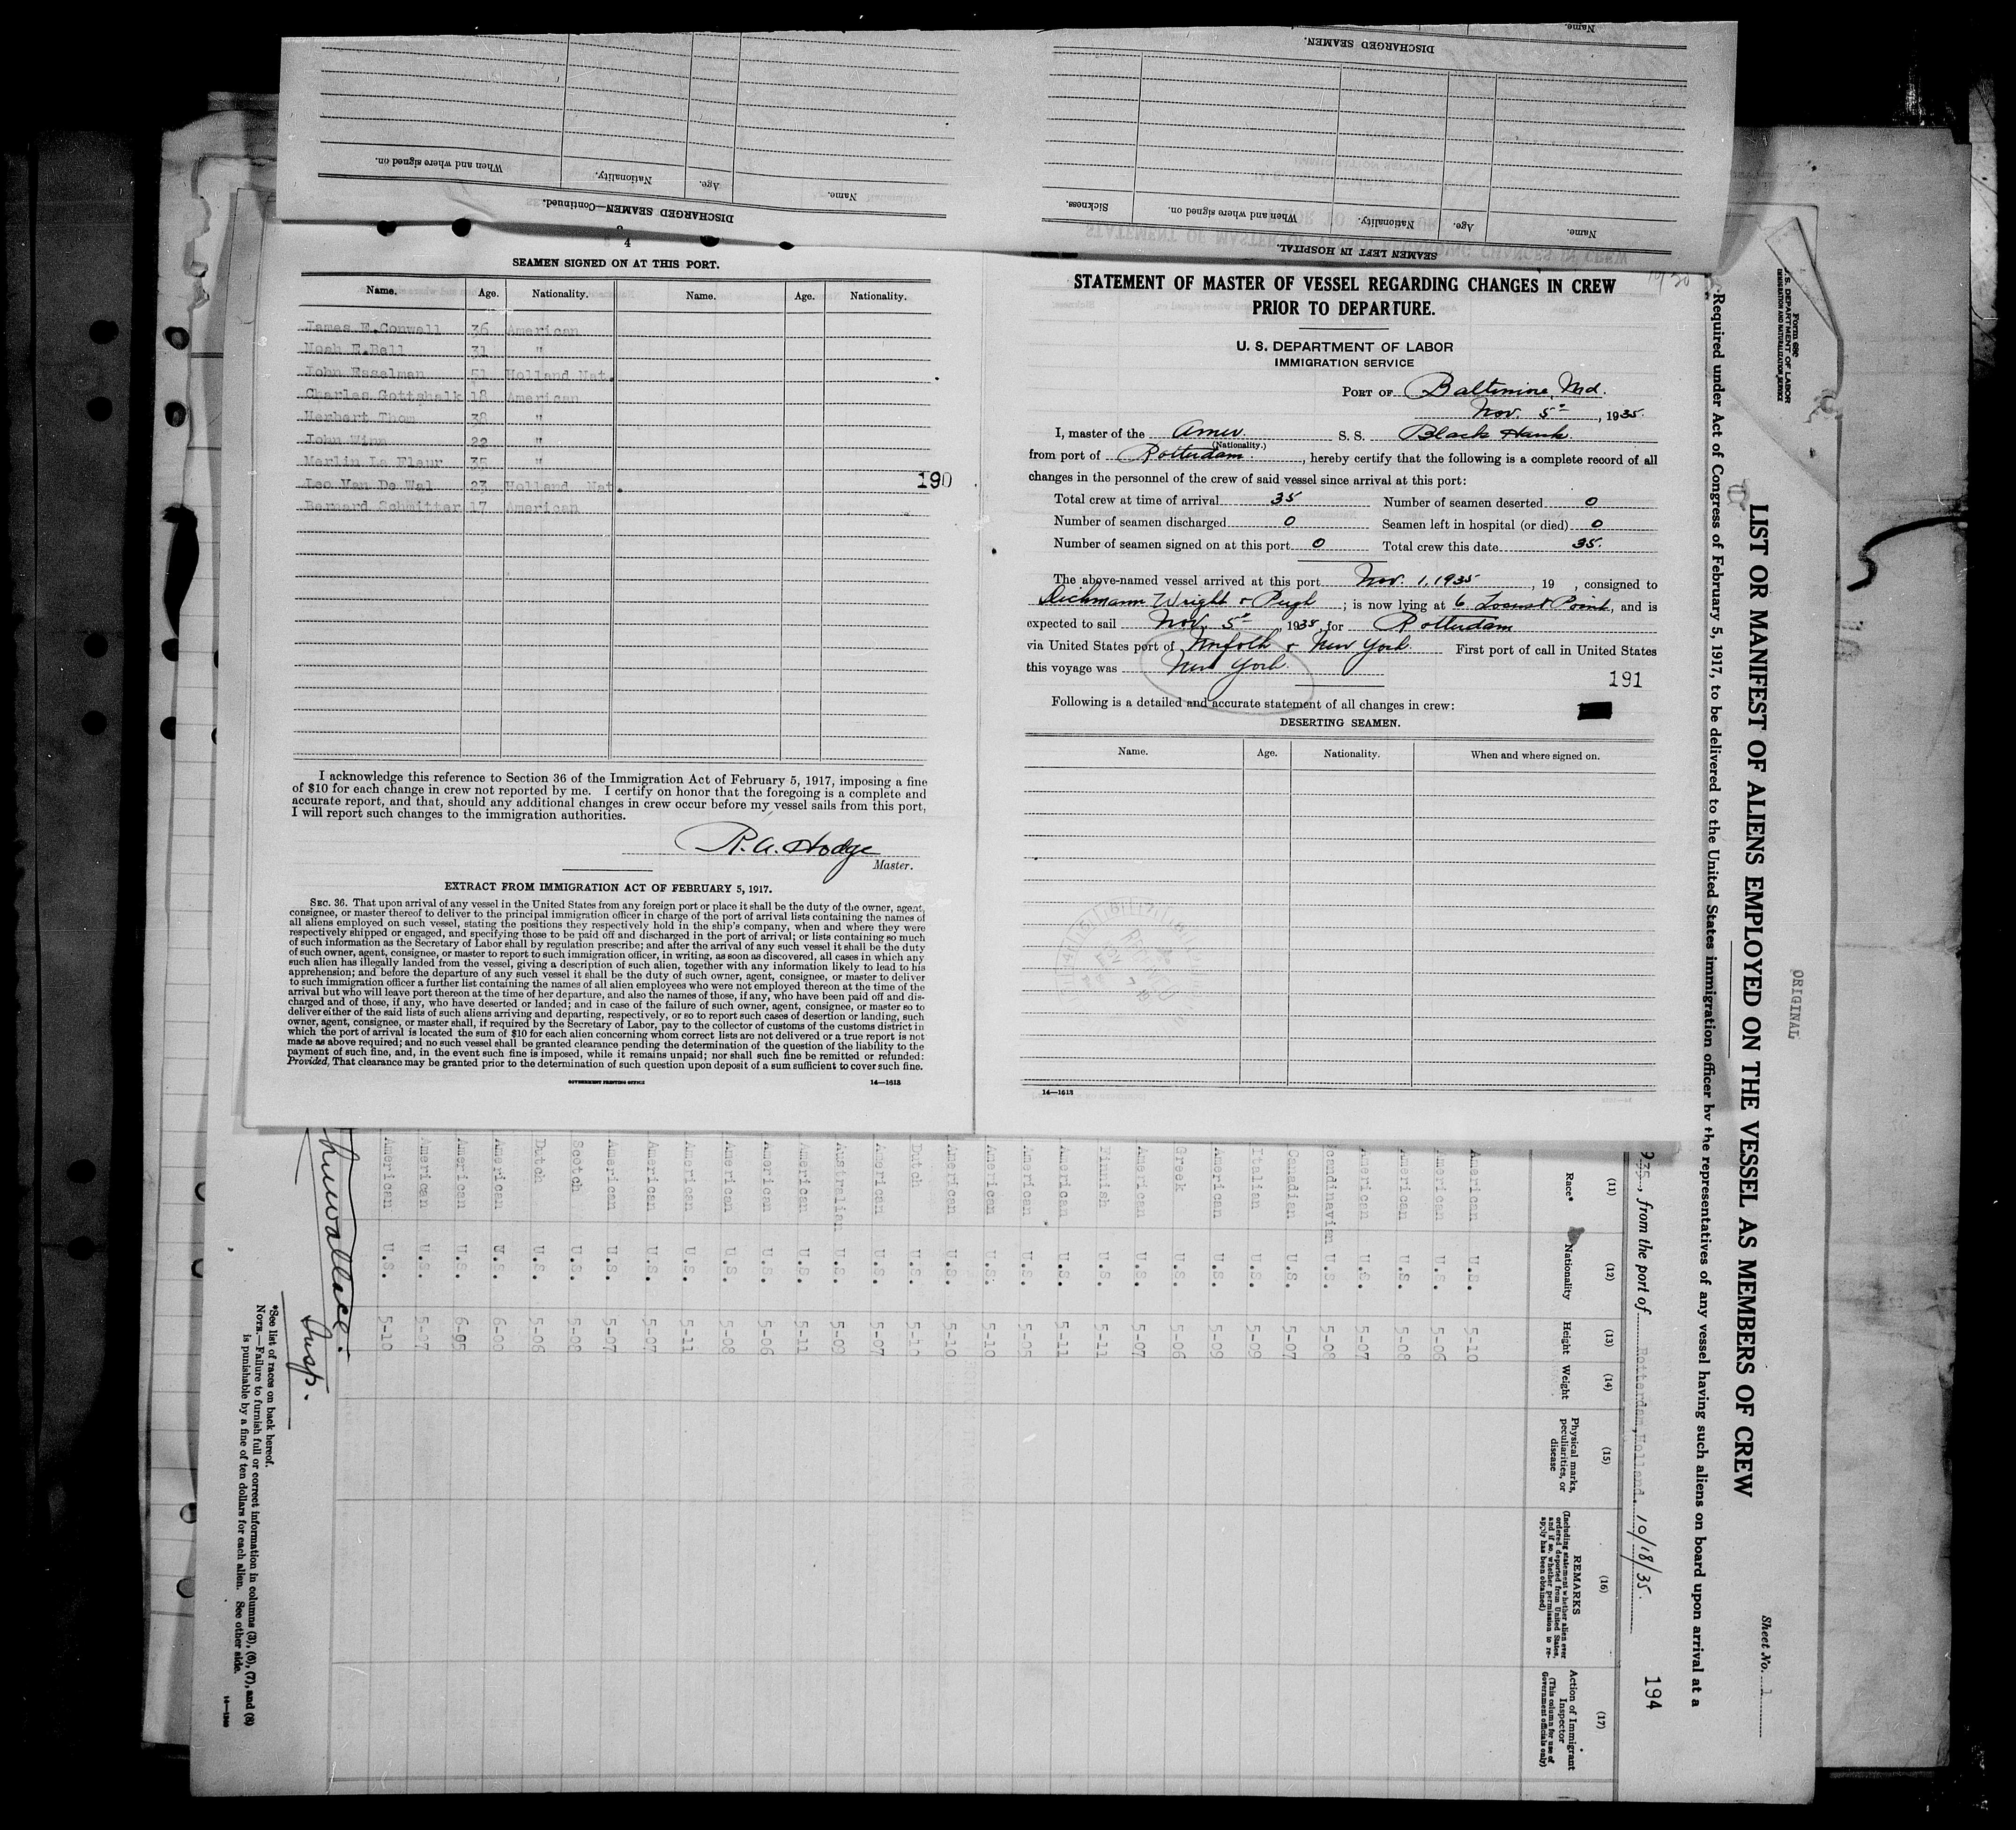 DISCHARGED SEAMEN—Continued.
Name.
Age.
Nationality.
When and where signed on.
DISCHARGED SEAMEN.
Name.
SEAMEN LEFT IN HOSPITAL.
Name.
Age.
Nationality.
When and where signed on.
Sickness.
4
SEAMEN SIGNED ON AT THIS PORT.
Name. Age. Nationality. Name. Age. Nationality.
James E.Conwell 36 American
Noah E.Bell 31 "
John Esselman 51 Holland Nat.
Charles Gottshalk 18 American
Herbert Thom 38 "
John Winn 22 "
Merlin La Fleur 35 "
Leo Van De Wal 23 Holland Nat.
Bernard Schmitter 17 American
190
I acknowledge this reference to Section 36 of the Immigration Act of February 5, 1917, imposing a fine
of $10 for each change in crew not reported by me. I certify on honor that the foregoing is a complete and
accurate report, and that, should any additional changes in crew occur before my vessel sails from this port,
I will report such changes to the immigration authorities.
R. A. Hodge
Master.
EXTRACT FROM IMMIGRATION ACT OF FEBRUARY 5, 1917.
SEC. 36. That upon arrival of any vessel in the United States from any foreign port or place it shall be the duty of the owner, agent,
consignee, or master thereof to deliver to the principal immigration officer in charge of the port of arrival lists containing the names of
all aliens employed on such vessel, stating the positions they respectively hold in the ship's company, when and where they were
respectively shipped or engaged, and specifying those to be paid off and discharged in the port of arrival; or lists containing so much
of such information as the Secretary of Labor shall by regulation prescribe; and after the arrival of any such vessel it shall be the duty
of such owner, agent, consignee, or master to report to such immigration officer, in writing, as soon as discovered, all cases in which any
such alien has illegally landed from the vessel, giving a description of such alien, together with any information likely to lead to his
apprehension; and before the departure of any such vessel it shall be the duty of such owner, agent, consignee, or master to deliver
to such immigration officer a further list containing the names of all alien employees who were not employed thereon at the time of the
arrival but who will leave port thereon at the time of her departure, and also the names of those, if any, who have been paid off and dis-
charged and of those, if any, who have deserted or landed; and in case of the failure of such owner, agent, consignee, or master so to
deliver either of the said lists of such aliens arriving and departing, respectively, or so to report such cases of desertion or landing, such
owner, agent, consignee, or master shall, if required by the Secretary of Labor, pay to the collector of customs of the customs district in
which the port of arrival is located the sum of $10 for each alien concerning whom correct lists are not delivered or a true report is not
made as above required; and no such vessel shall be granted clearance pending the determination of the question of the liability to the
payment of such fine, and, in the event such fine is imposed, while it remains unpaid; nor shall such fine be remitted or refunded:
Provided, That clearance may be granted prior to the determination of such question upon deposit of a sum sufficient to cover such fine.
GOVERNMENT PRINTING OFFICE 14—1613
STATEMENT OF MASTER OF VESSEL REGARDING CHANGES IN CREW
PRIOR TO DEPARTURE.
U. S. DEPARTMENT OF LABOR
IMMIGRATION SERVICE
PORT OF Baltimore, Md.
Nov. 5", 1935.
I, master of the Amer. S. S. Black Hawk.
(Nationality.)
from port of Rotterdam., hereby certify that the following is a complete record of all
changes in the personnel of the crew of said vessel since arrival at this port:
Total crew at time of arrival 35 Number of seamen deserted 0
Number of seamen discharged 0 Seamen left in hospital (or died) 0
Number of seamen signed on at this port 0 Total crew this date 35.
The above-named vessel arrived at this port Nov. 1, 1935, 19 , consigned to
Dichmann Wright & Pugh; is now lying at 6 Locust Point, and is
expected to sail Nov. 5", 1935, for Rotterdam
via United States port of Norfolk & New York. First port of call in United States
this voyage was New York.
191
Following is a detailed and accurate statement of all changes in crew:
DESERTING SEAMEN.
Name. Age. Nationality. When and where signed on.
14—1613
Form 680
U. S. DEPARTMENT OF LABOR
IMMIGRATION AND NATURALIZATION SERVICE
ORIGINAL
LIST OR MANIFEST OF ALIENS EMPLOYED ON THE VESSEL AS MEMBERS OF CREW
Sheet No. 1
Required under Act of Congress of February 5, 1917, to be delivered to the United States immigration officer by the representatives of any vessel having such aliens on board upon arrival at a
935, from the port of Rotterdam,Holland. 10/18/35.
194
(11) (12) (13) (14) (15) (16) (17)
Race* Nationality Height Weight Physical marks, peculiarities, or disease REMARKS (Including statement whether alien ever ordered deported from United States, and if so, whether permission to re-apply has been obtained) Action of Immigrant Inspector (This column for use of Government officials only)
American U.S. 5-10
American U.S. 5-06
American U.S. 5-08
American U.S. 5-07
Scandinavian U.S. 5-08
Canadian U.S. 5-07
Italian U.S. 5-09
American U.S. 5-09
Greek U.S. 5-06
American U.S. 5-07
Finnish U.S. 5-11
American U.S. 5-11
American U.S. 5-05
American U.S. 5-10
American U.S. 5-10
Dutch U.S. 5-10
American U.S. 5-07
Australian U.S. 5-09
American U.S. 5-11
American U.S. 5-06
American U.S. 5-08
American U.S. 5-11
American U.S. 5-07
American U.S. 5-07
Scotch U.S. 5-08
Dutch U.S. 5-06
American U.S. 6-00
American U.S. 6-05
American U.S. 5-07
American U.S. 5-10
Insp.
*See list of races on back hereof.
NOTE.—Failure to furnish full or correct information in columns (3), (6), (7), and (8)
is punishable by a fine of ten dollars for each alien. See other side.
14—1240